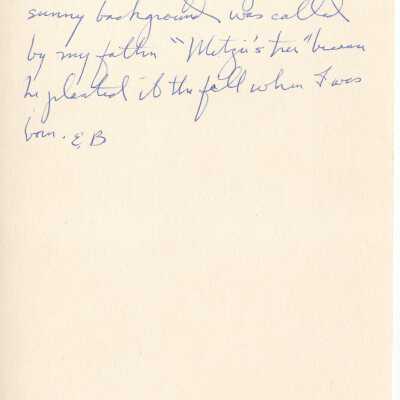 sunny background was called
by my father "Mitzi's tree" because
he planted it the fall when I was
born. E B